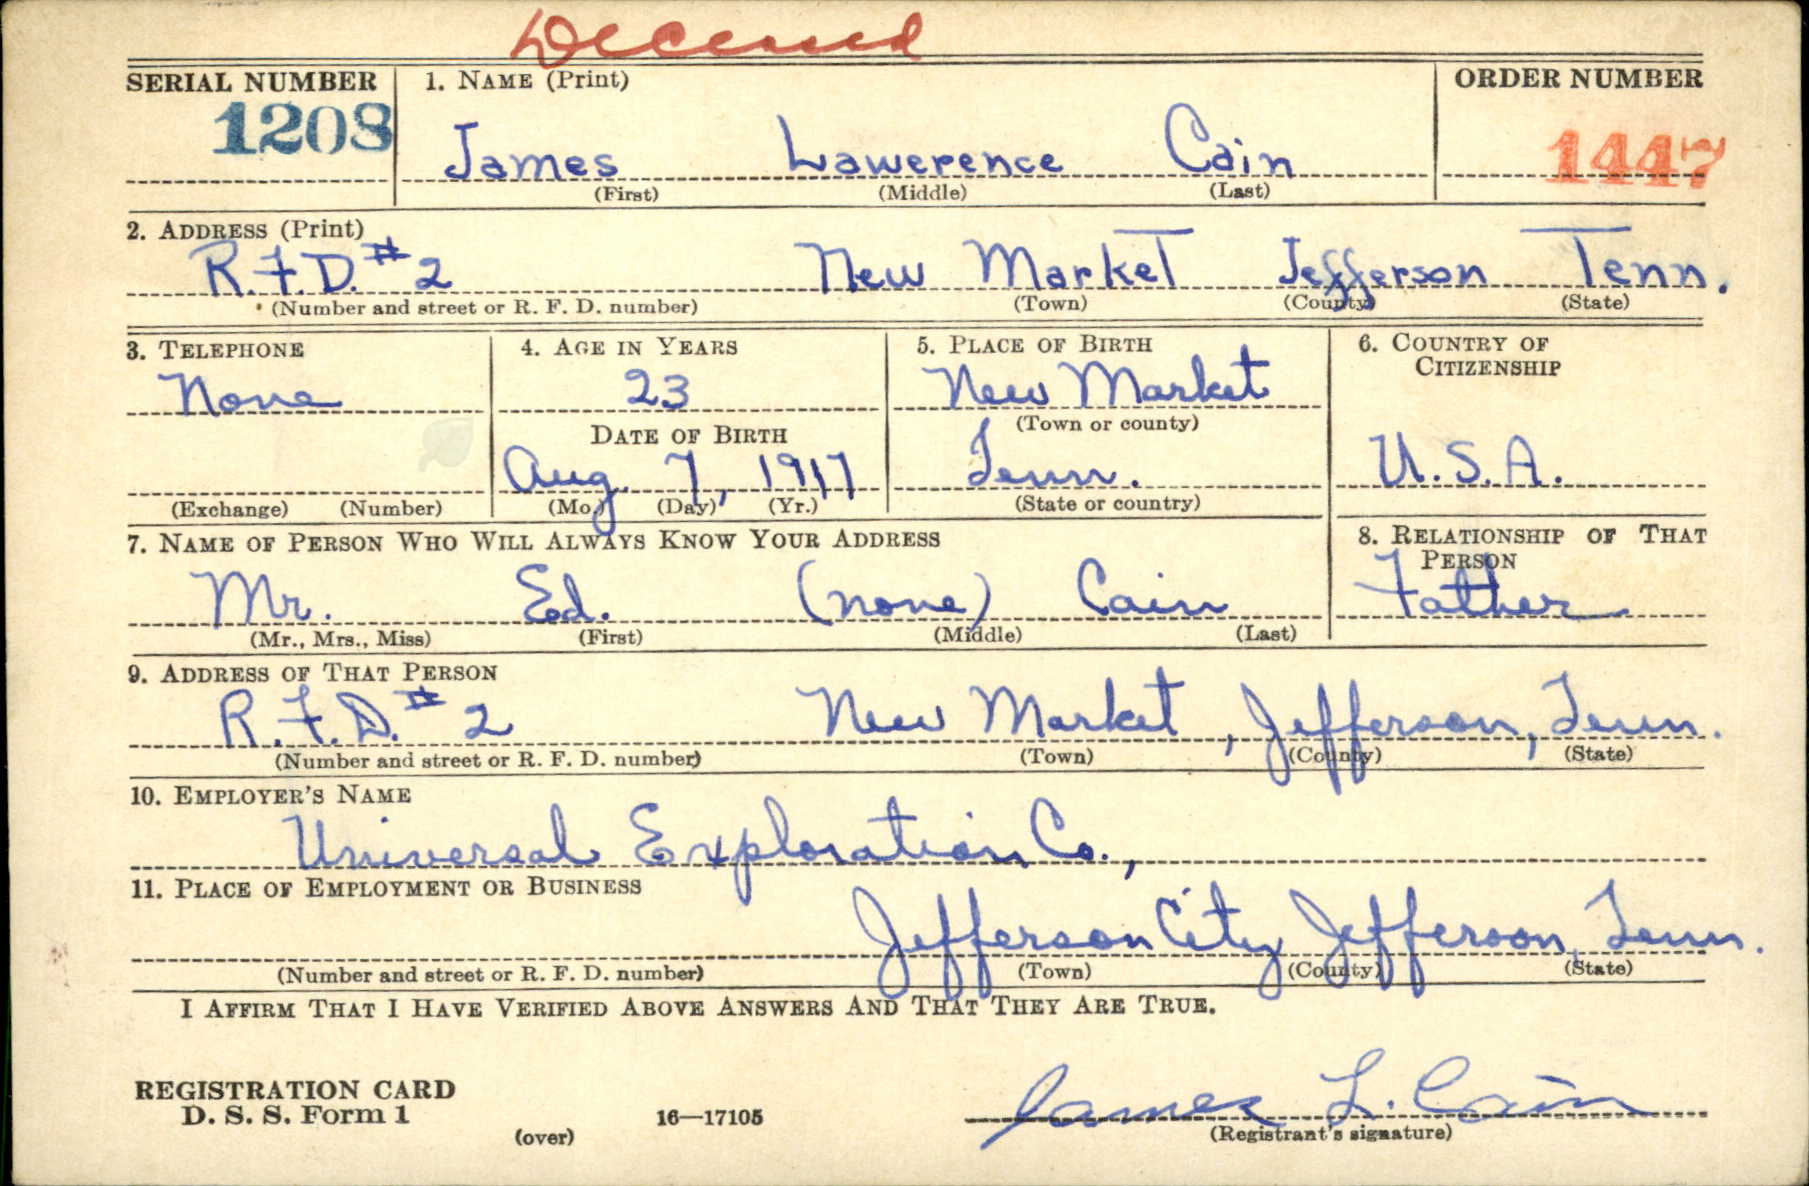 Deceased
SERIAL NUMBER 1. NAME (Print) ORDER NUMBER
1208 James Lawerence Cain 1447
(First) (Middle) (Last)
2. ADDRESS (Print)
R.F.D. #2 New Market Jefferson Tenn.
(Number and street or R. F. D. number) (Town) (County) (State)
3. TELEPHONE 4. AGE IN YEARS 5. PLACE OF BIRTH 6. COUNTRY OF
CITIZENSHIP
None 23 New Market
DATE OF BIRTH (Town or county)
Aug. 7, 1917 Tenn. U.S.A.
(Exchange) (Number) (Mo.) (Day) (Yr.) (State or country)
7. NAME OF PERSON WHO WILL ALWAYS KNOW YOUR ADDRESS 8. RELATIONSHIP OF THAT
PERSON
Mr. Ed. (none) Cain Father
(Mr., Mrs., Miss) (First) (Middle) (Last)
9. ADDRESS OF THAT PERSON
R.F.D. #2 New Market, Jefferson, Tenn.
(Number and street or R. F. D. number) (Town) (County) (State)
10. EMPLOYER'S NAME
Universal Exploration Co.,
11. PLACE OF EMPLOYMENT OR BUSINESS
Jefferson City Jefferson, Tenn.
(Number and street or R. F. D. number) (Town) (County) (State)
I AFFIRM THAT I HAVE VERIFIED ABOVE ANSWERS AND THAT THEY ARE TRUE.
REGISTRATION CARD
D. S. S. Form 1 16—17105 James L. Cain
(over) (Registrant's signature)